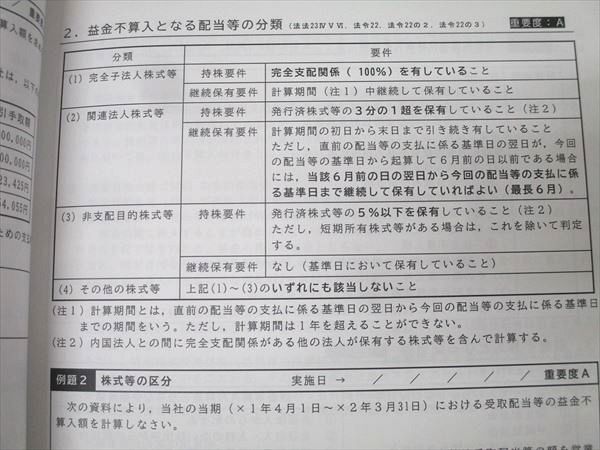 2．益金不算入となる配当等の分類（法法23ⅣⅤⅥ，法令22，法令22の2，法令22の3） 重要度：A
分類 要件
(1) 完全子法人株式等 持株要件 完全支配関係（100％）を有していること
継続保有要件 計算期間（注1）中継続して保有していること
(2) 関連法人株式等 持株要件 発行済株式等の3分の1超を保有していること（注2）
継続保有要件 計算期間の初日から末日まで引き続き有していること
ただし，直前の配当等の支払に係る基準日の翌日が，今回
の配当等の基準日から起算して6月前の日以前である場合
には，当該6月前の日の翌日から今回の配当等の支払に係
る基準日まで継続して保有していればよい（最長6月）。
(3) 非支配目的株式等 持株要件 発行済株式等の5％以下を保有していること（注2）
ただし，短期所有株式等がある場合は，これを除いて判定
する。
継続保有要件 なし（基準日において保有していること）
(4) その他の株式等 上記(1)～(3)のいずれにも該当しないこと
（注1）計算期間とは，直前の配当等の支払に係る基準日の翌日から今回の配当等の支払に係る基準日
までの期間をいう。ただし，計算期間は1年を超えることができない。
（注2）内国法人との間に完全支配関係がある他の法人が保有する株式等を含んで計算する。
例題2 株式等の区分 実施日 → ／ ／ ／ ／ ／ 重要度A
次の資料により，当社の当期（×1年4月1日～×2年3月31日）における受取配当等の益金不
算入額を計算しなさい。
入額を求め
は，以下の
引手取額
00,000円
00,000円
23,425円
54,055円
ための支払